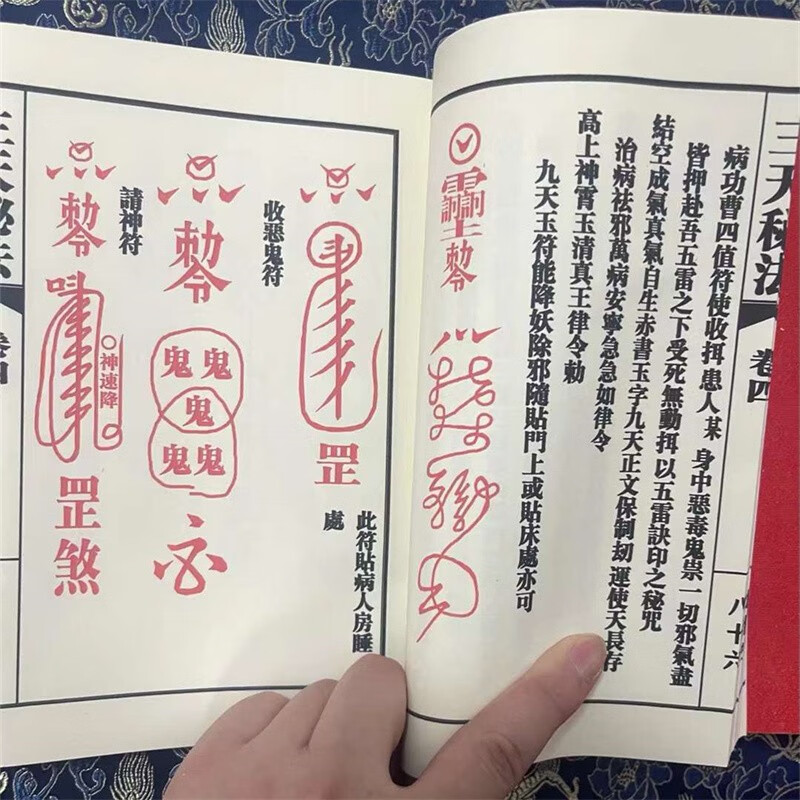 三天秘法 卷四 八十六
病功曹四值符使收患人某 身中惡毒鬼祟一切邪氣盡
皆押赴吾五雷之下受死無動以五雷訣印之秘咒
結空成氣真氣自生赤書玉字九天正文保制劫運使天長存
治病祛邪萬病安寧急急如律令
高上神霄玉清真王律令勅
九天玉符能降妖除邪隨貼門上或貼床處亦可
勅令
此符貼病人房睡
處
罡
收惡鬼符
勅令
鬼鬼
鬼
鬼鬼
請神符
勅令
神速降
罡煞
三天秘法 卷四